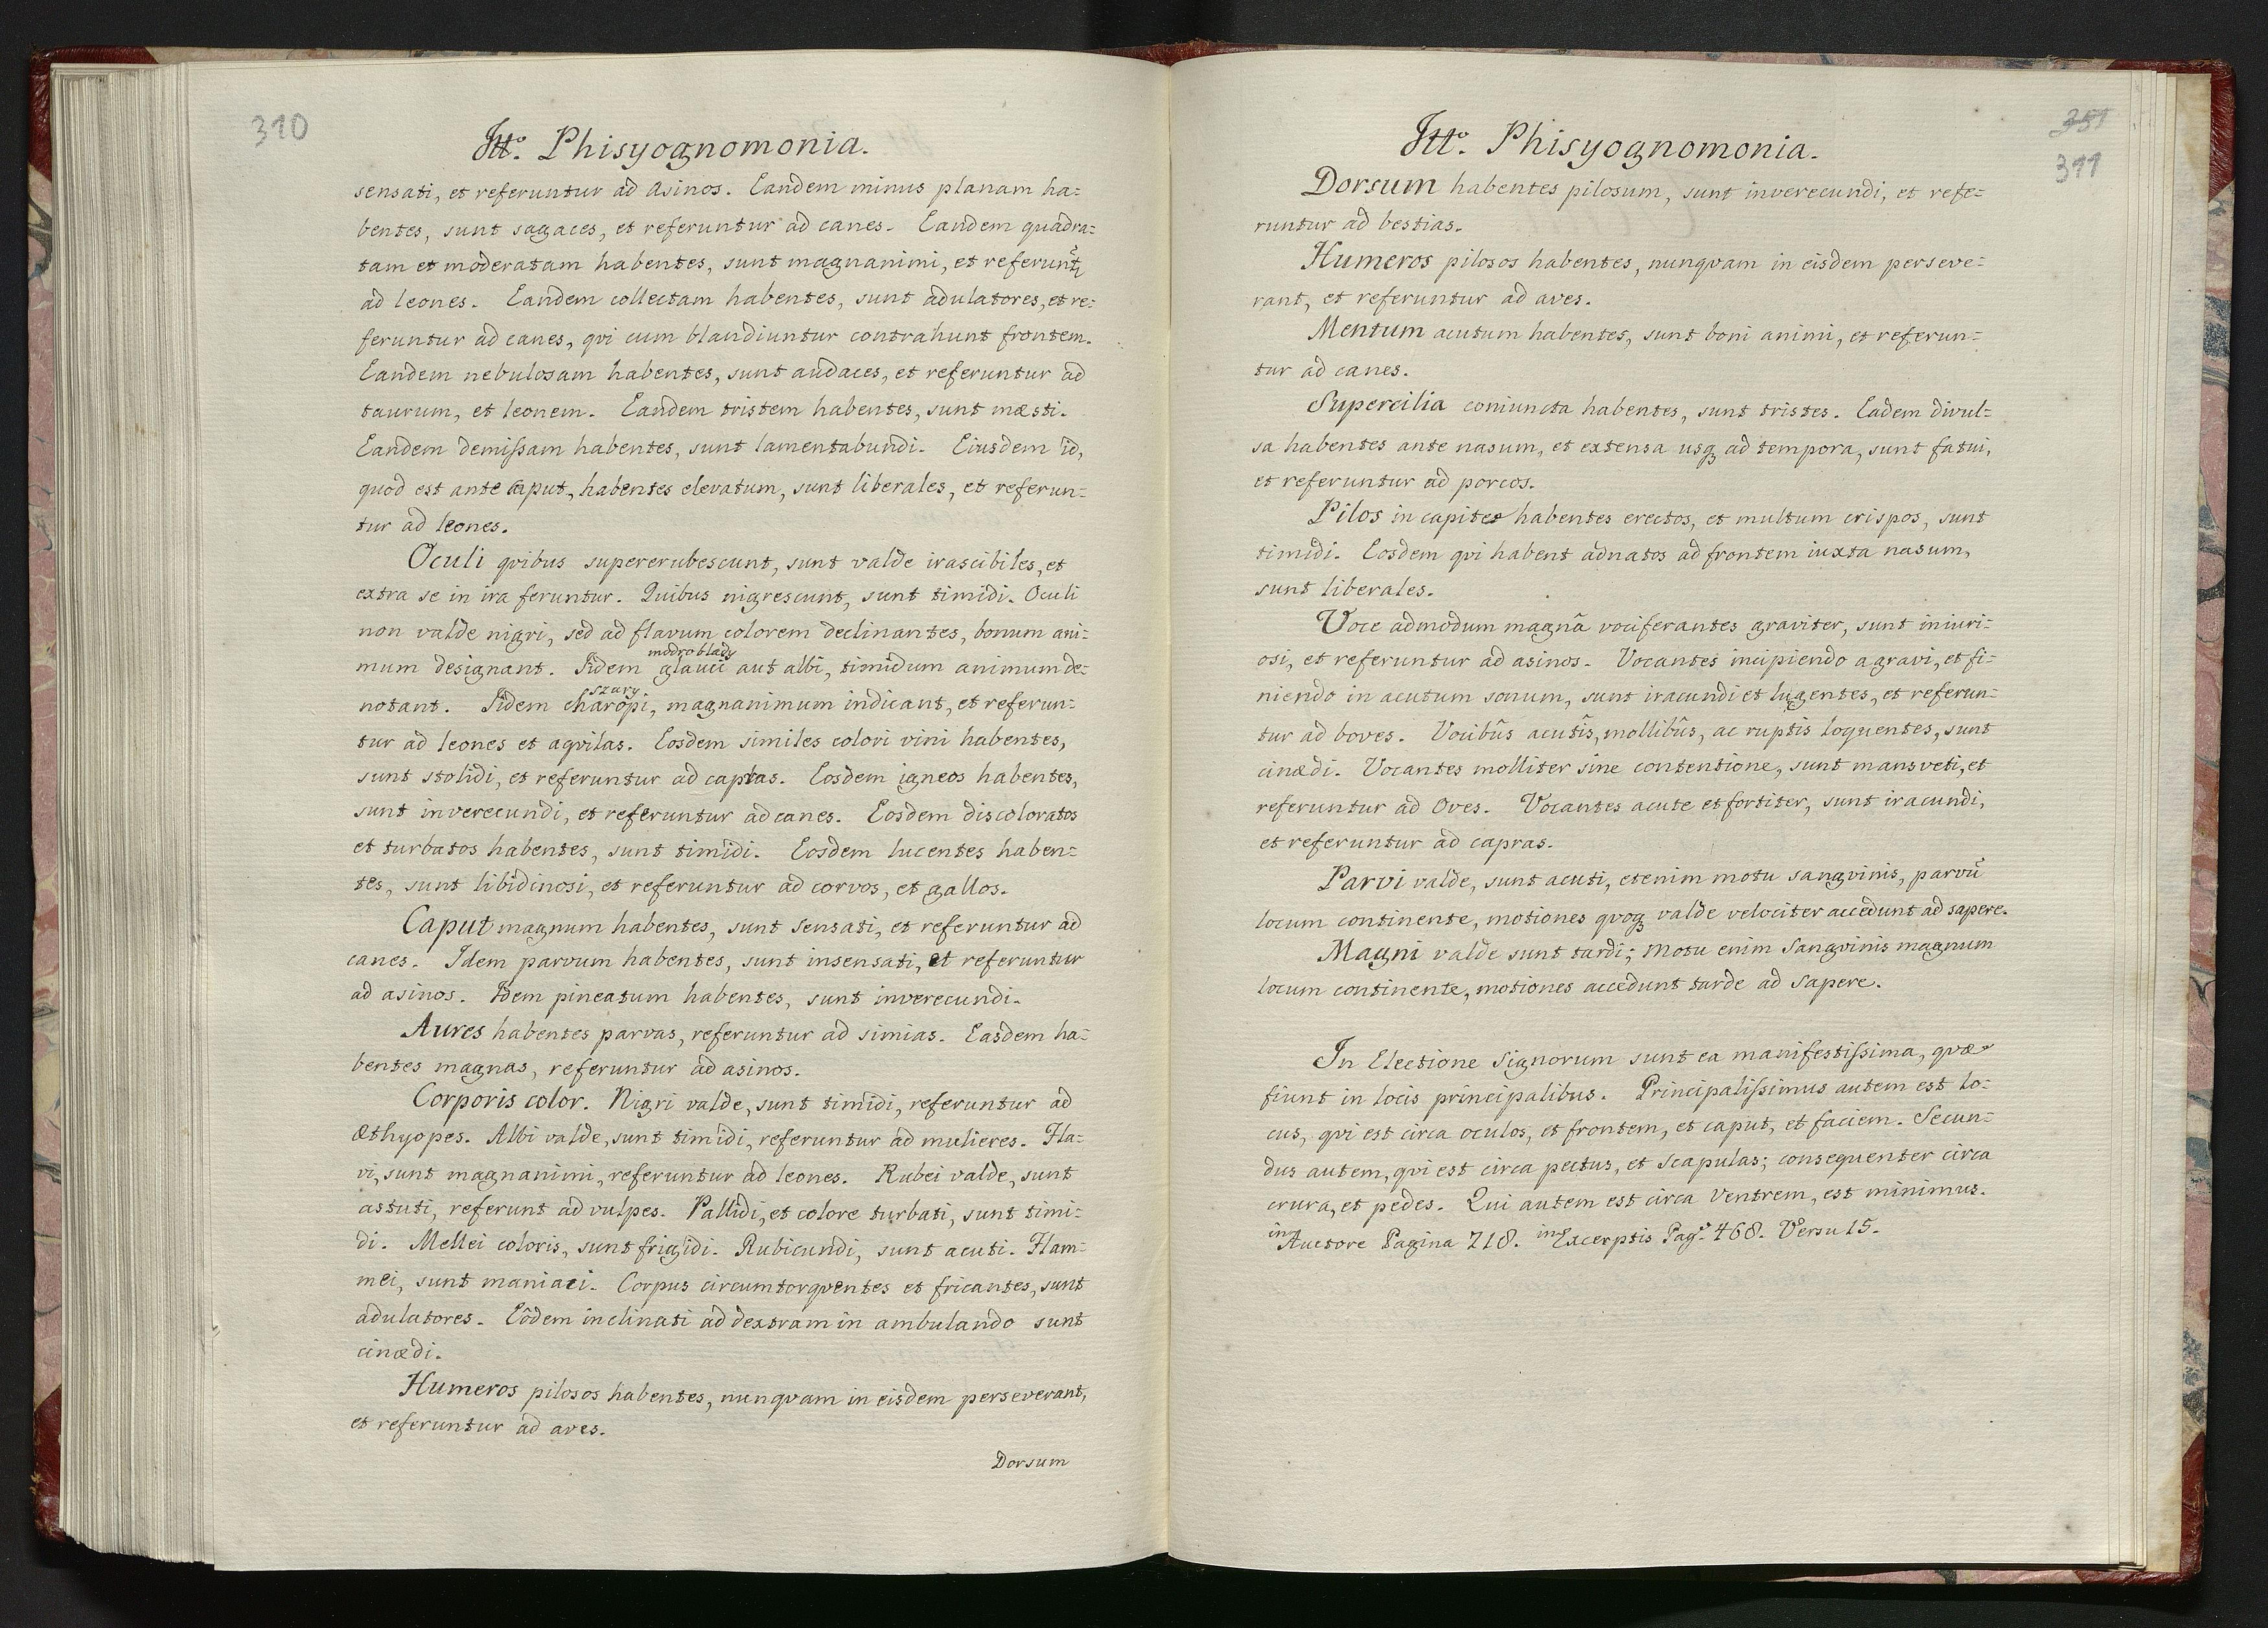 310
Itt. Phisyognomonia.
sensati, et referuntur ad Asinos. Eandem minus planam ha=
bentes, sunt sagaces, et referuntur ad canes. Eandem quadra=
tam et moderatam habentes, sunt magnanimi, et referunt̃,
ad leones. Eandem collectam habentes, sunt adulatores, et re=
feruntur ad canes, qvi cum blandiuntur contrahunt frontem.
Eandem nebulosam habentes, sunt audaces, et referuntur ad
taurum, et leonem. Eandem tristem habentes, sunt mæsti.
Eandem demiſsam habentes, sunt lamentabundi. Eiusdem id,
quod est ante caput, habentes elevatum, sunt liberales, et referun=
tur ad leones.
Oculi qvibus supererubescunt, sunt valde irascibiles, et
extra se in ira feruntur. Quibus nigrescunt, sunt timidi. Oculi
non valde nigri, sed ad flavum colorem declinantes, bonum ani=
modroblady
mum designant. Iidem glauci aut albi, timidum animum de=
szary
notant. Iidem charopi, magnanimum indicant, et referun=
tur ad leones et aqvilas. Eosdem similes colori vini habentes,
sunt stolidi, et referuntur ad capras. Eosdem igneos habentes,
sunt inverecundi, et referuntur ad canes. Eosdem discoloratos
et turbatos habentes, sunt timidi. Eosdem lucentes haben=
tes, sunt libidinosi, et referuntur ad corvos, et gallos.
Caput magnum habentes, sunt sensati, et referuntur ad
canes. Idem parvum habentes, sunt insensati, et referuntur
ad asinos. Idem pineatum habentes, sunt inverecundi.
Aures habentes parvas, referuntur ad simias. Easdem ha=
bentes magnas, referuntur ad asinos.
Corporis color. Nigri valde, sunt timidi, referuntur ad
Æthyopes. Albi valde, sunt timidi, referuntur ad mulieres. Fla=
vi, sunt magnanimi, referuntur ad leones. Rubei valde, sunt
astuti, referunt ad vulpes. Pallidi, et colore turbati, sunt timi=
di. Mellei coloris, sunt frigidi. Rubicundi, sunt acuti. Flam=
mei, sunt maniaci. Corpus circumtorqventes et fricantes, sunt
adulatores. Eôdem inclinati ad dextram in ambulando sunt
cinædi.
Humeros pilosos habentes, nunqvam in eisdem perseverant,
et referuntur ad aves.
Dorsum
351
311
Itt. Phisyognomonia.
Dorsum habentes pilosum, sunt inverecundi, et refe=
runtur ad bestias.
Humeros pilosos habentes, nunqvam in eisdem perseve=
rant, et referuntur ad aves.
Mentum acutum habentes, sunt boni animi, et referun=
tur ad canes.
Supercilia coniuncta habentes, sunt tristes. Eadem divul=
sa habentes ante nasum, et extensa usq ad tempora, sunt fatui,
et referuntur ad porcos.
Pilos in capite habentes erectos, et multum crispos, sunt
timidi. Eosdem qvi habent adnatos ad frontem iuxta nasum,
sunt liberales.
Voce admodum magnâ vociferantes graviter, sunt iniuri=
osi, et referuntur ad asinos. Vocantes incipiendo a gravi, et fi=
niendo in acutum sonum, sunt iracundi et lugentes, et referun=
tur ad boves. Vocibûs acutîs, mollibûs, ac ruptîs loquentes, sunt
cinædi. Vocantes molliter sine contentione, sunt mansveti, et
referuntur ad Oves. Vocantes acute et fortiter, sunt iracundi,
et referuntur ad capras.
Parvi valde, sunt acuti, etenim motu sangvinis, parvũ
locum continente, motiones qvoq valde velociter accedunt ad sapere.
Magni valde sunt tardi; Motu enim Sangvinis magnum
locum continente, motiones accedunt tarde ad Sapere.
In Electione Signorum sunt ea manifestiſsima, qvæ
fiunt in locis principalibus. Principaliſsimus autem est lo=
cus, qvi est circa oculos, et frontem, et caput, et faciem. Secun=
dus autem, qvi est circa pectus, et Scapulas; consequenter circa
crura, et pedes. Qui autem est circa Ventrem, est minimus.
in Auctore Pagina 718. in Excerptis Pag. 468. Versu 15.